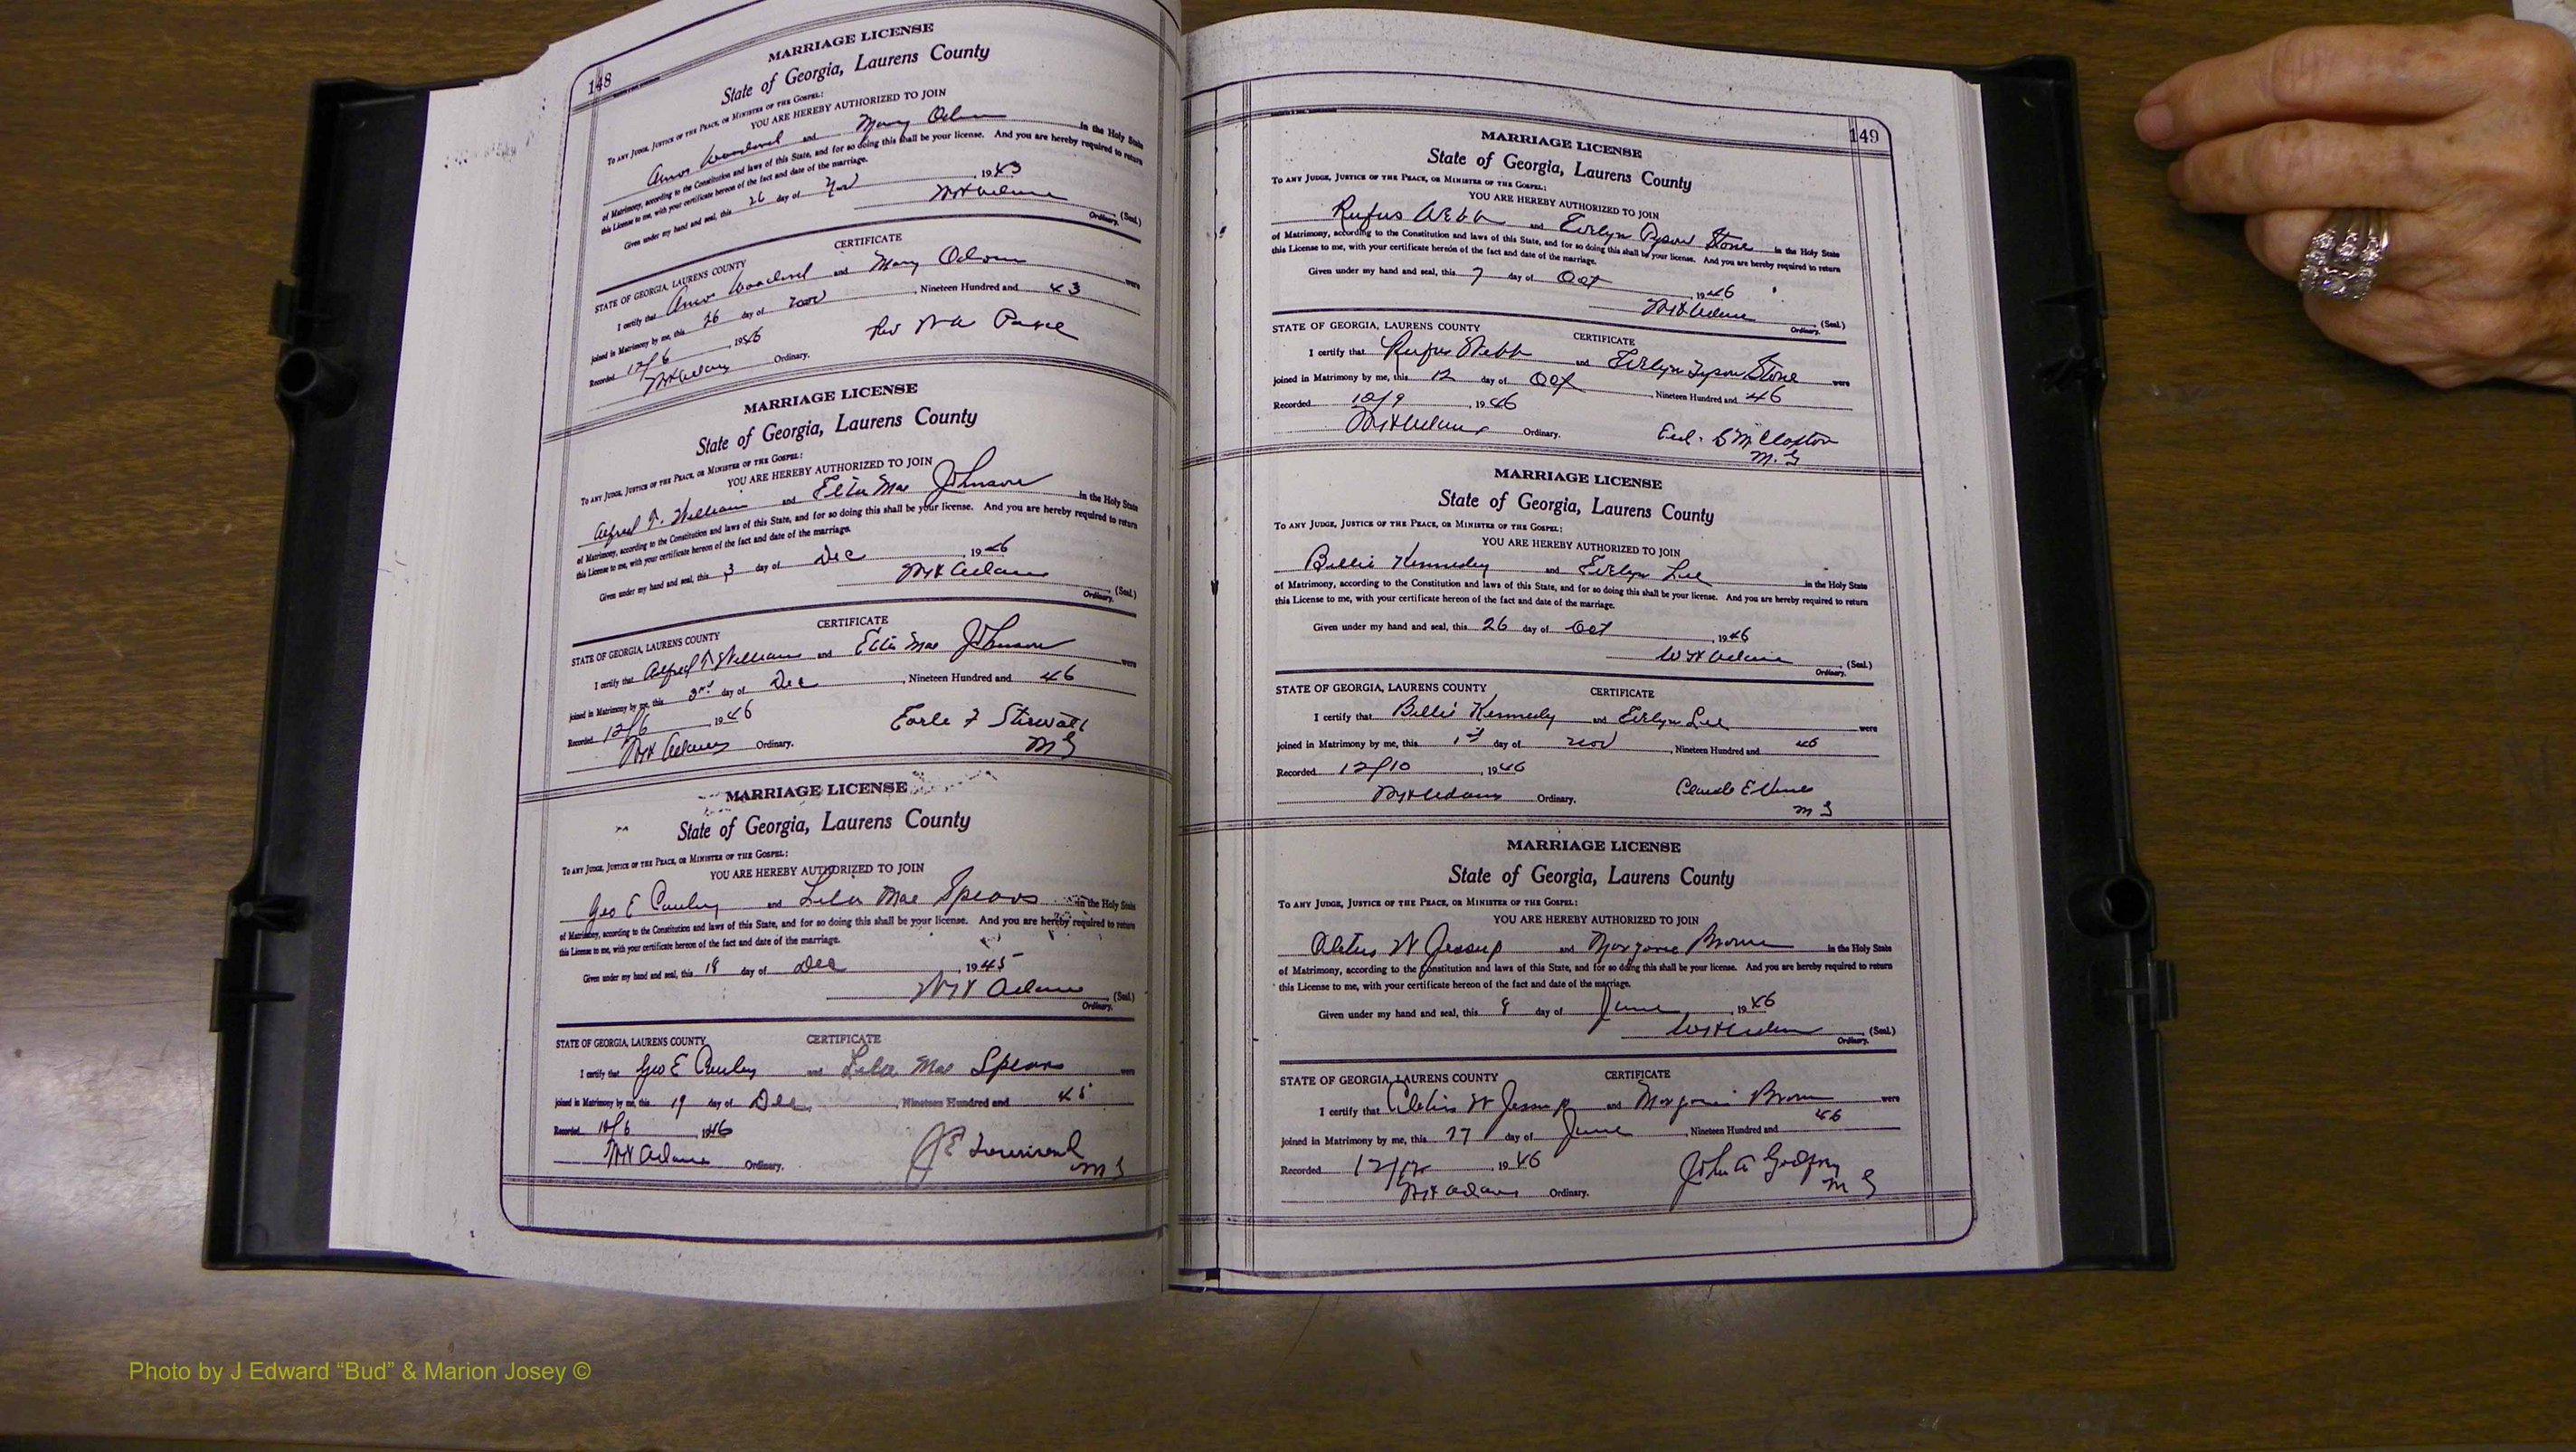 148
MARRIAGE LICENSE
State of Georgia, Laurens County
To any Judge, Justice of the Peace, or Minister of the Gospel:
YOU ARE HEREBY AUTHORIZED TO JOIN
Amos Woodard and Mary in the Holy State
of Matrimony, according to the Constitution and laws of this State, and for so doing this shall be your license. And you are hereby required to return
this License to me, with your certificate hereon of the fact and date of the marriage.
Given under my hand and seal, this 26 day of Nov , 1943
(Seal.)
Ordinary.
CERTIFICATE
STATE OF GEORGIA, LAURENS COUNTY
I certify that Amos Woodard and Mary were
joined in Matrimony by me, this 26 day of Nov , Nineteen Hundred and 43
Recorded 12/6 , 1946 Rev
Ordinary.
MARRIAGE LICENSE
State of Georgia, Laurens County
To any Judge, Justice of the Peace, or Minister of the Gospel:
YOU ARE HEREBY AUTHORIZED TO JOIN
Alfred T. William and Etta Mae Johnson in the Holy State
of Matrimony, according to the Constitution and laws of this State, and for so doing this shall be your license. And you are hereby required to return
this License to me, with your certificate hereon of the fact and date of the marriage.
Given under my hand and seal, this 3 day of Dec , 1946
Adams (Seal.)
Ordinary.
CERTIFICATE
STATE OF GEORGIA, LAURENS COUNTY
I certify that Alfred T Williams and Etta Mae Johnson were
joined in Matrimony by me, this 3rd day of Dec , Nineteen Hundred and 46
Recorded 12/6 , 1946 Earle F Stirwalt
Adams Ordinary. M G
MARRIAGE LICENSE
State of Georgia, Laurens County
To any Judge, Justice of the Peace, or Minister of the Gospel:
YOU ARE HEREBY AUTHORIZED TO JOIN
Geo E and Lila Mae Spears in the Holy State
of Matrimony, according to the Constitution and laws of this State, and for so doing this shall be your license. And you are hereby required to return
this License to me, with your certificate hereon of the fact and date of the marriage.
Given under my hand and seal, this 18 day of Dec , 1945
Adams (Seal.)
Ordinary.
CERTIFICATE
STATE OF GEORGIA, LAURENS COUNTY
I certify that Geo E and Lila Mae Spears were
joined in Matrimony by me, this 19 day of Dec , Nineteen Hundred and 45
Recorded , 1946 J E
Adams Ordinary. M G
149
MARRIAGE LICENSE
State of Georgia, Laurens County
To any Judge, Justice of the Peace, or Minister of the Gospel:
YOU ARE HEREBY AUTHORIZED TO JOIN
Rufus Webb and Evelyn Tyson Stone in the Holy State
of Matrimony, according to the Constitution and laws of this State, and for so doing this shall be your license. And you are hereby required to return
this License to me, with your certificate hereon of the fact and date of the marriage.
Given under my hand and seal, this 7 day of Oct , 1946
Adams (Seal.)
Ordinary.
STATE OF GEORGIA, LAURENS COUNTY CERTIFICATE
I certify that Rufus Webb and Evelyn Tyson Stone were
joined in Matrimony by me, this 12 day of Oct , Nineteen Hundred and 46
Recorded , 1946
Adams Ordinary. S M Claxton
M. G
MARRIAGE LICENSE
State of Georgia, Laurens County
To any Judge, Justice of the Peace, or Minister of the Gospel:
YOU ARE HEREBY AUTHORIZED TO JOIN
Billie Kennedy and Evelyn Lee in the Holy State
of Matrimony, according to the Constitution and laws of this State, and for so doing this shall be your license. And you are hereby required to return
this License to me, with your certificate hereon of the fact and date of the marriage.
Given under my hand and seal, this 26 day of Oct , 1946
Adams (Seal.)
Ordinary.
STATE OF GEORGIA, LAURENS COUNTY CERTIFICATE
I certify that Billie Kennedy and Evelyn Lee were
joined in Matrimony by me, this 1st day of Nov , Nineteen Hundred and 46
Recorded 12/10 , 1946
Adams Ordinary. Claude E
M G
MARRIAGE LICENSE
State of Georgia, Laurens County
To any Judge, Justice of the Peace, or Minister of the Gospel:
YOU ARE HEREBY AUTHORIZED TO JOIN
W Jessup and Marjorie Brown in the Holy State
of Matrimony, according to the Constitution and laws of this State, and for so doing this shall be your license. And you are hereby required to return
this License to me, with your certificate hereon of the fact and date of the marriage.
Given under my hand and seal, this 8 day of June , 1946
(Seal.)
Ordinary.
STATE OF GEORGIA, LAURENS COUNTY CERTIFICATE
I certify that W Jessup and Marjorie Brown were
joined in Matrimony by me, this day of June , Nineteen Hundred and 46
Recorded , 1946 John A
Adams Ordinary. M G
Photo by J Edward “Bud” & Marion Josey ©